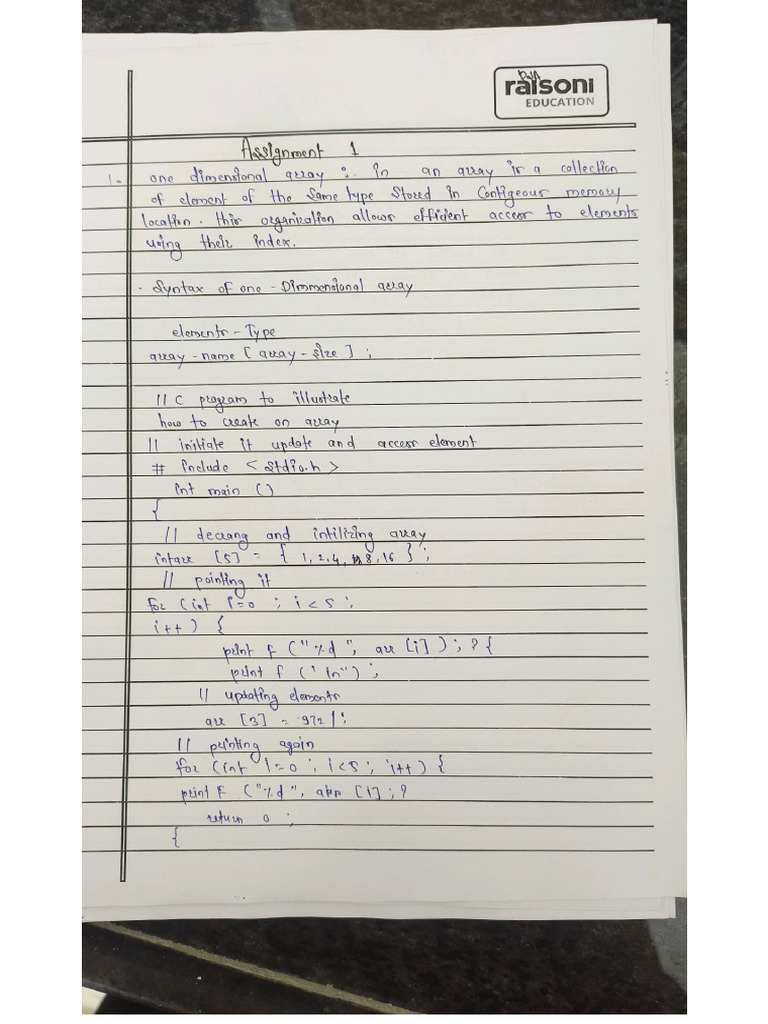 raisoni
EDUCATION
Assignment 1
1. one dimensional array :. in an array is a collection
of element of the same type stored in Contigeous memory
location. this organization allows efficient access to elements
using their index.
- Syntax of one - Dimmensional array
elements - Type
array - name [ array - size ] ;
// C program to illustrate
how to create on array
// initiate it update and access element
# include < stdio.h >
int main ()
{
// decrang and intilizing array
intarr [5] = { 1, 2, 4, 8, 16 } ;
// pointing it
for (int i=0 ; i < 5 ;
i++ ) {
print f ("%d ", arr [i] ) ; ? {
print f (' \n") ;
// updating elements
arr [3] = .972 | ;
// printing again
for (int i=0 ; i<5 ; i++ ) {
print f ("%d ", app [i] ; ?
return 0 ;
{